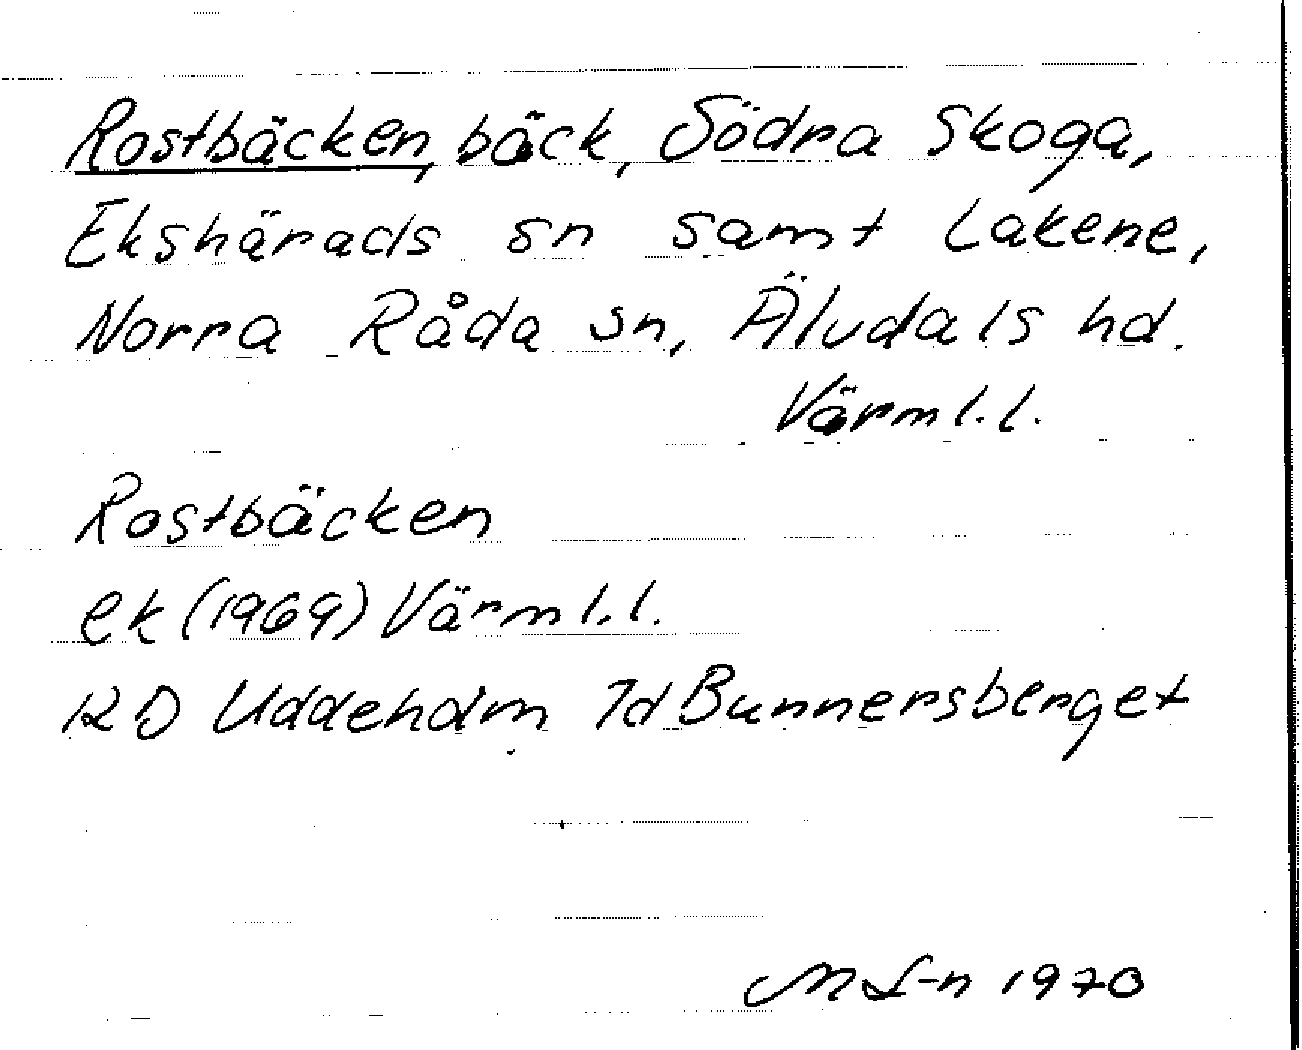 Rostbäcken, bäck, Södra Skoga,
Ekshärads sn samt Lakene,
Norra Råda sn, Älvdals hd.
Värml.l.
Rostbäcken
ek (1969) Värml.l.
RD Uddeholm 7d Bunnersberget
M L-n 1970